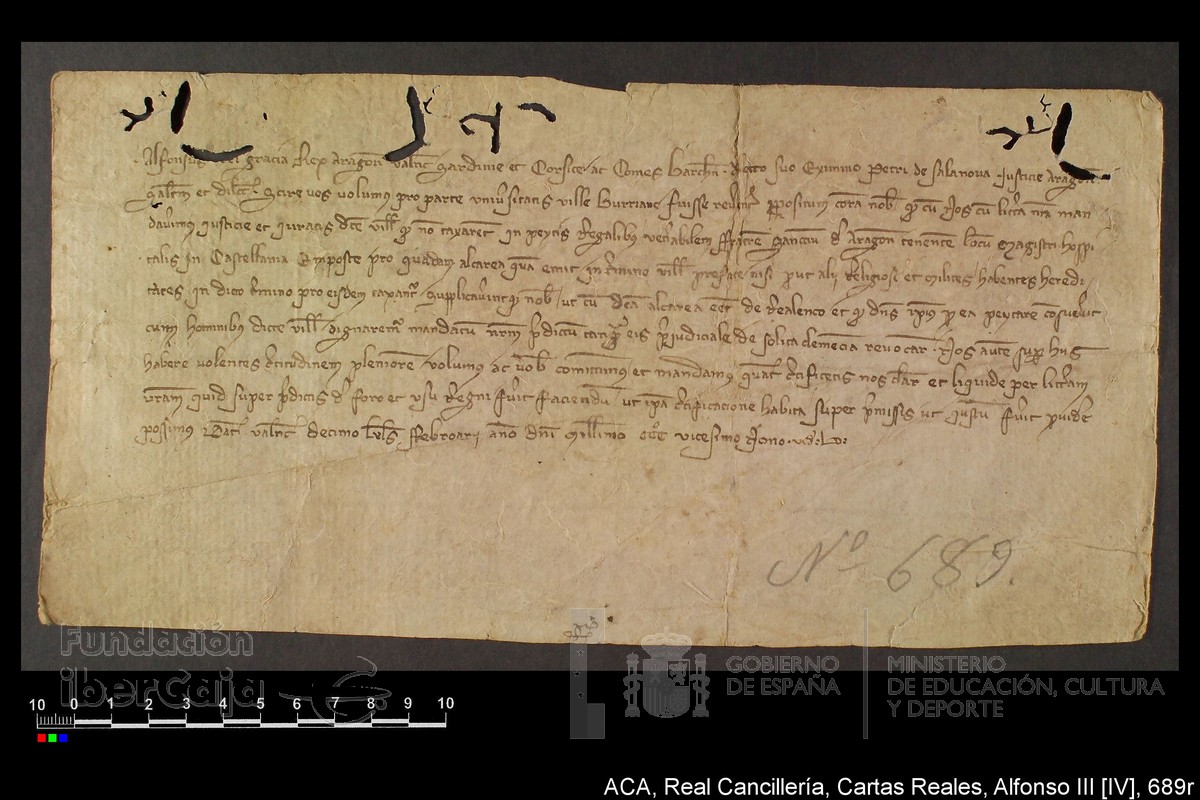 Alfonsus dei gracia Rex Aragon Valenc Sardinie et Corsice ac Comes Barchn dilecto suo Eximino Petri de Salanova Justicie Aragon
salutem et dilect Scire vos volumus pro parte universitatis ville Burriane fuisse reverent propositum coram nob quod cum Nos cum littera nra man
daverimus Justicie et Juratis dce ville quod non taxarent in peytis Regalibus venerabilem ffratrem Sanccium de Aragon tenentem locum Magistri hospi
talis in Castellania Emposte pro quadam alcarea quam emit in termino ville prefate nisi prout alii Religiosi et milites habentes heredi
tates in dicto termino pro eisdem taxantur supplicaverintque nob ut cum dca alcarea esset de Realenco et quod dns ipius pro ea peytare consuevit
cum hominibus dicte ville dignaremur mandatum nrm predictum tanquam eis prejudiciale de solita clemencia revocare Nos autem super hiis
habere volentes certitudinem pleniorem volumus ac vob comittimus et mandamus quatenus certificetis nos clare et liquide per litteram
vram quid super predictis de foro et usu Regni fuerit faciendum ut ipa certificacione habita super premissis ut justum fuerit providere
possimus Dat Valenc decimo kls ffebroarii anno dni Millimo CCC vicesimo Nono
Nº 689.
Fundación
iberCaja
GOBIERNO
DE ESPAÑA
MINISTERIO
DE EDUCACIÓN, CULTURA
Y DEPORTE
10 0 1 2 3 4 5 6 7 8 9 10
ACA, Real Cancillería, Cartas Reales, Alfonso III [IV], 689r